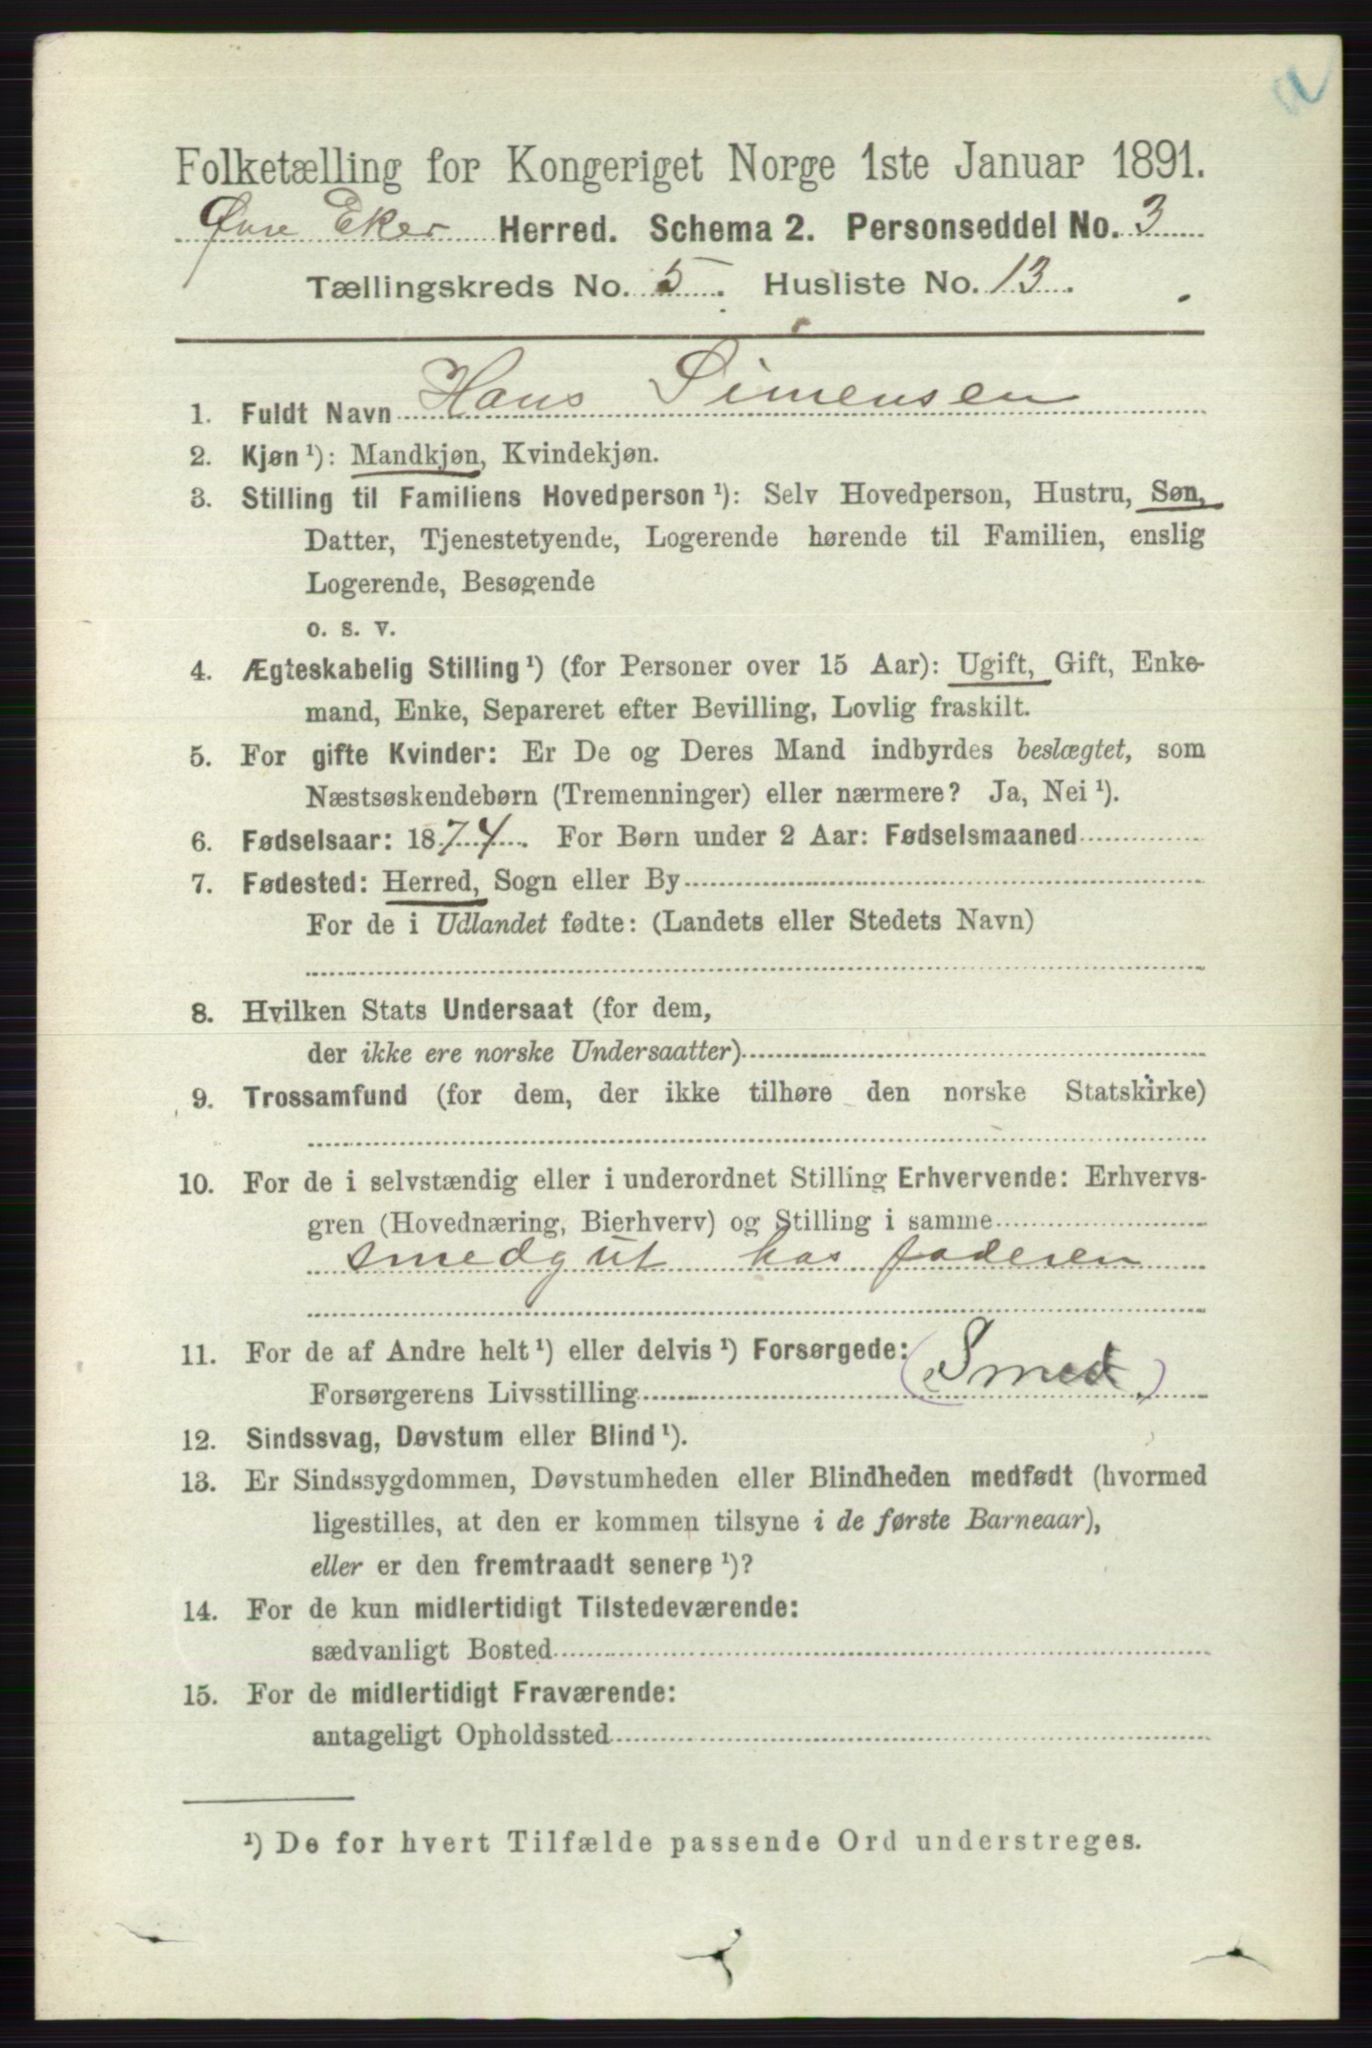 a
Folketælling for Kongeriget Norge 1ste Januar 1891.
Øvre Eker Herred. Schema 2. Personseddel No. 3
Tællingskreds No. 5. Husliste No. 13.
1. Fuldt Navn Hans Simensen
2. Kjøn ¹): Mandkjøn, Kvindekjøn.
3. Stilling til Familiens Hovedperson ¹): Selv Hovedperson, Hustru, Søn,
Datter, Tjenestetyende, Logerende hørende til Familien, enslig
Logerende, Besøgende
o. s. v.
4. Ægteskabelig Stilling ¹) (for Personer over 15 Aar): Ugift, Gift, Enke-
mand, Enke, Separeret efter Bevilling, Lovlig fraskilt.
5. For gifte Kvinder: Er De og Deres Mand indbyrdes beslægtet, som
Næstsøskendebørn (Tremenninger) eller nærmere? Ja, Nei ¹).
6. Fødselsaar: 1874. For Børn under 2 Aar: Fødselsmaaned
7. Fødested: Herred, Sogn eller By
For de i Udlandet fødte: (Landets eller Stedets Navn)
8. Hvilken Stats Undersaat (for dem,
der ikke ere norske Undersaatter)
9. Trossamfund (for dem, der ikke tilhøre den norske Statskirke)
10. For de i selvstændig eller i underordnet Stilling Erhvervende: Erhvervs-
gren (Hovednæring, Bierhverv) og Stilling i samme
smedgut hos faderen
11. For de af Andre helt ¹) eller delvis ¹) Forsørgede:
Forsørgerens Livsstilling (Smed)
12. Sindssvag, Døvstum eller Blind ¹).
13. Er Sindssygdommen, Døvstumheden eller Blindheden medfødt (hvormed
ligestilles, at den er kommen tilsyne i de første Barneaar),
eller er den fremtraadt senere ¹)?
14. For de kun midlertidigt Tilstedeværende:
sædvanligt Bosted
15. For de midlertidigt Fraværende:
antageligt Opholdssted
¹) De for hvert Tilfælde passende Ord understreges.